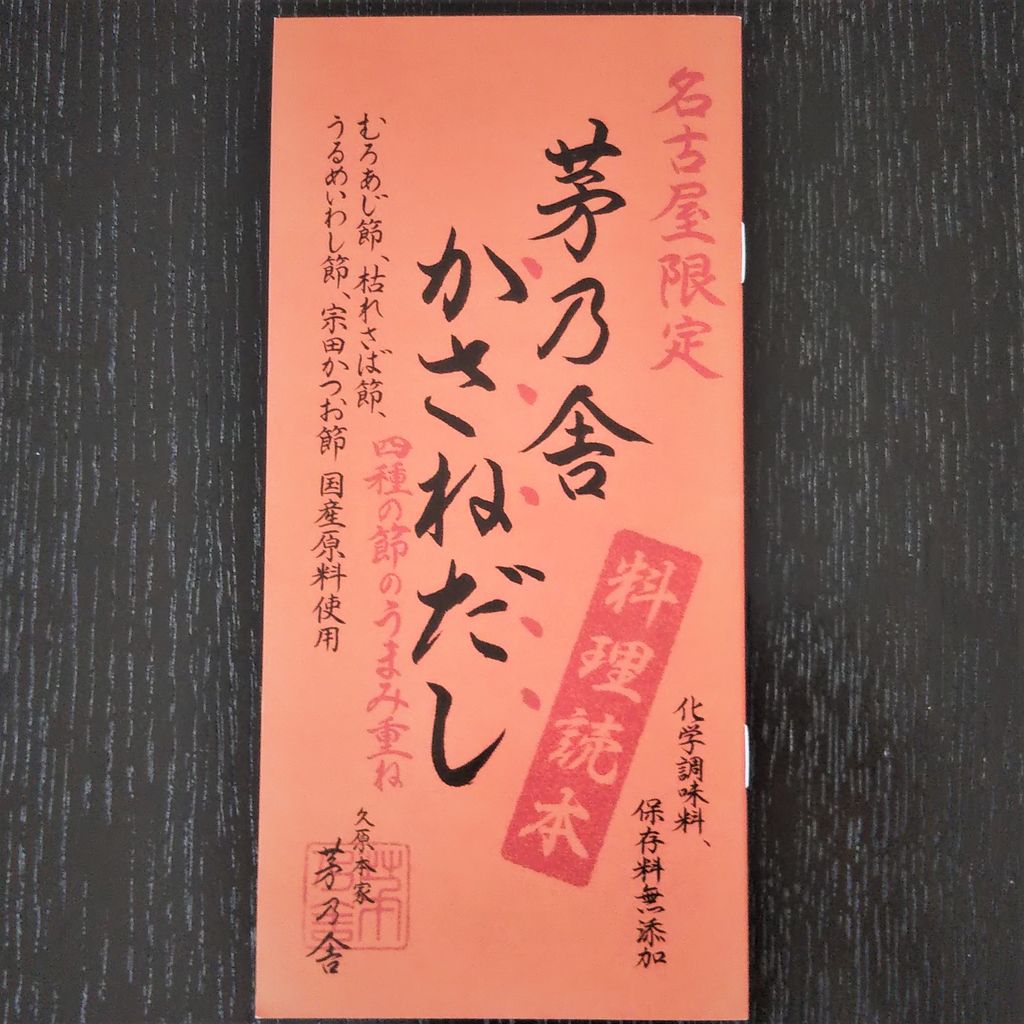 名古屋限定
茅乃舎
かさねだし
料理読本
化学調味料、
保存料無添加
四種の節のうまみ重ね
むろあじ節、枯れさば節、
うるめいわし節、宗田かつお節 国産原料使用
久原本家
茅乃舎